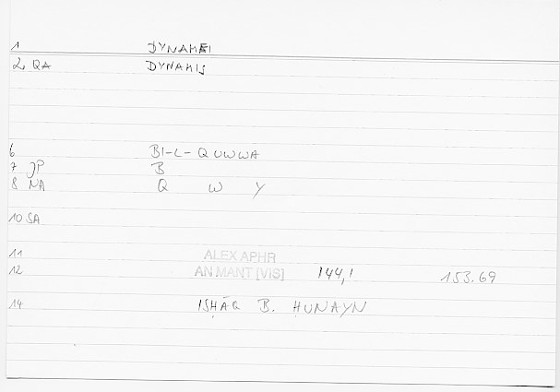 1 DYNAMEI
2 QA DYNAMIS
6 BI-L-QUWWA
7 JP B
8 NA Q W Y
10 SA
11 ALEX APHR
12 AN MANT [VIS] 144,1 153.69
14 ISḤĀQ B. ḤUNAYN